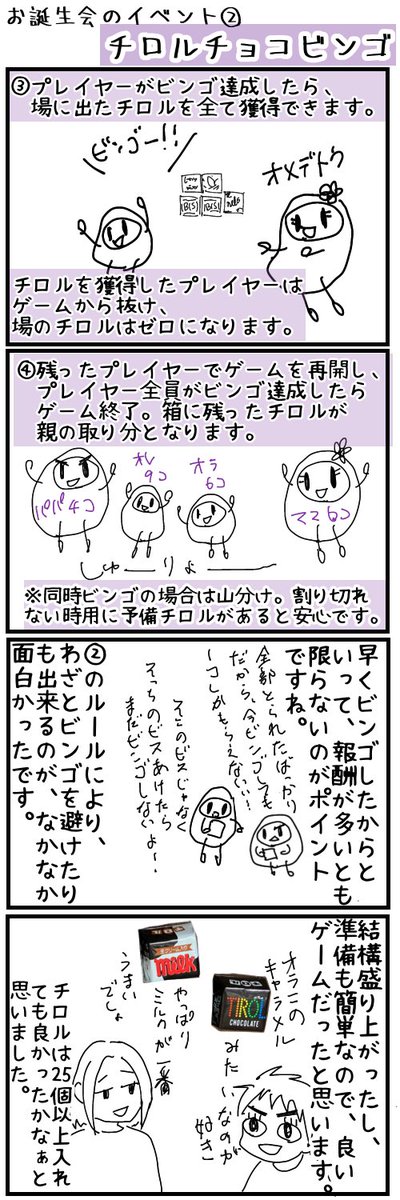 お誕生会のイベント②
チロルチョコビンゴ
③プレイヤーがビンゴ達成したら、
場に出たチロルを全て獲得できます。
ビンゴー!!
オメデトウ
チロルを獲得したプレイヤーは
ゲームから抜け、
場のチロルはゼロになります。
④残ったプレイヤーでゲームを再開し、
プレイヤー全員がビンゴ達成したら
ゲーム終了。箱に残ったチロルが
親の取り分となります。
パパ4コ
オレ
9コ
オラ
6コ
ママ6コ
しゅーりょー
※同時ビンゴの場合は山分け。割り切れ
ない時用に予備チロルがあると安心です。
早くビンゴしたからと
いって、報酬が多いとも
限らないのがポイント
ですね。
全部とられたばっかり
だから、今ビンゴしても
1コしかもらえない…!
そこのビスじゃなく
そっちのビスあけたら
まだビンゴしないよ…
②のルールにより、
わざとビンゴを避けたり
も出来るのが、なかなか
面白かったです。
結構盛り上がったし、
準備も簡単なので、良い
ゲームだったと思います。
オラこの
キャラメル
みたいなのが
好き
milk
TIROL
CHOCOLATE
やっぱり
ミルクが一番
うまい
でしょ
チロルは25個以上入れ
ても良かったかなぁと
思いました。